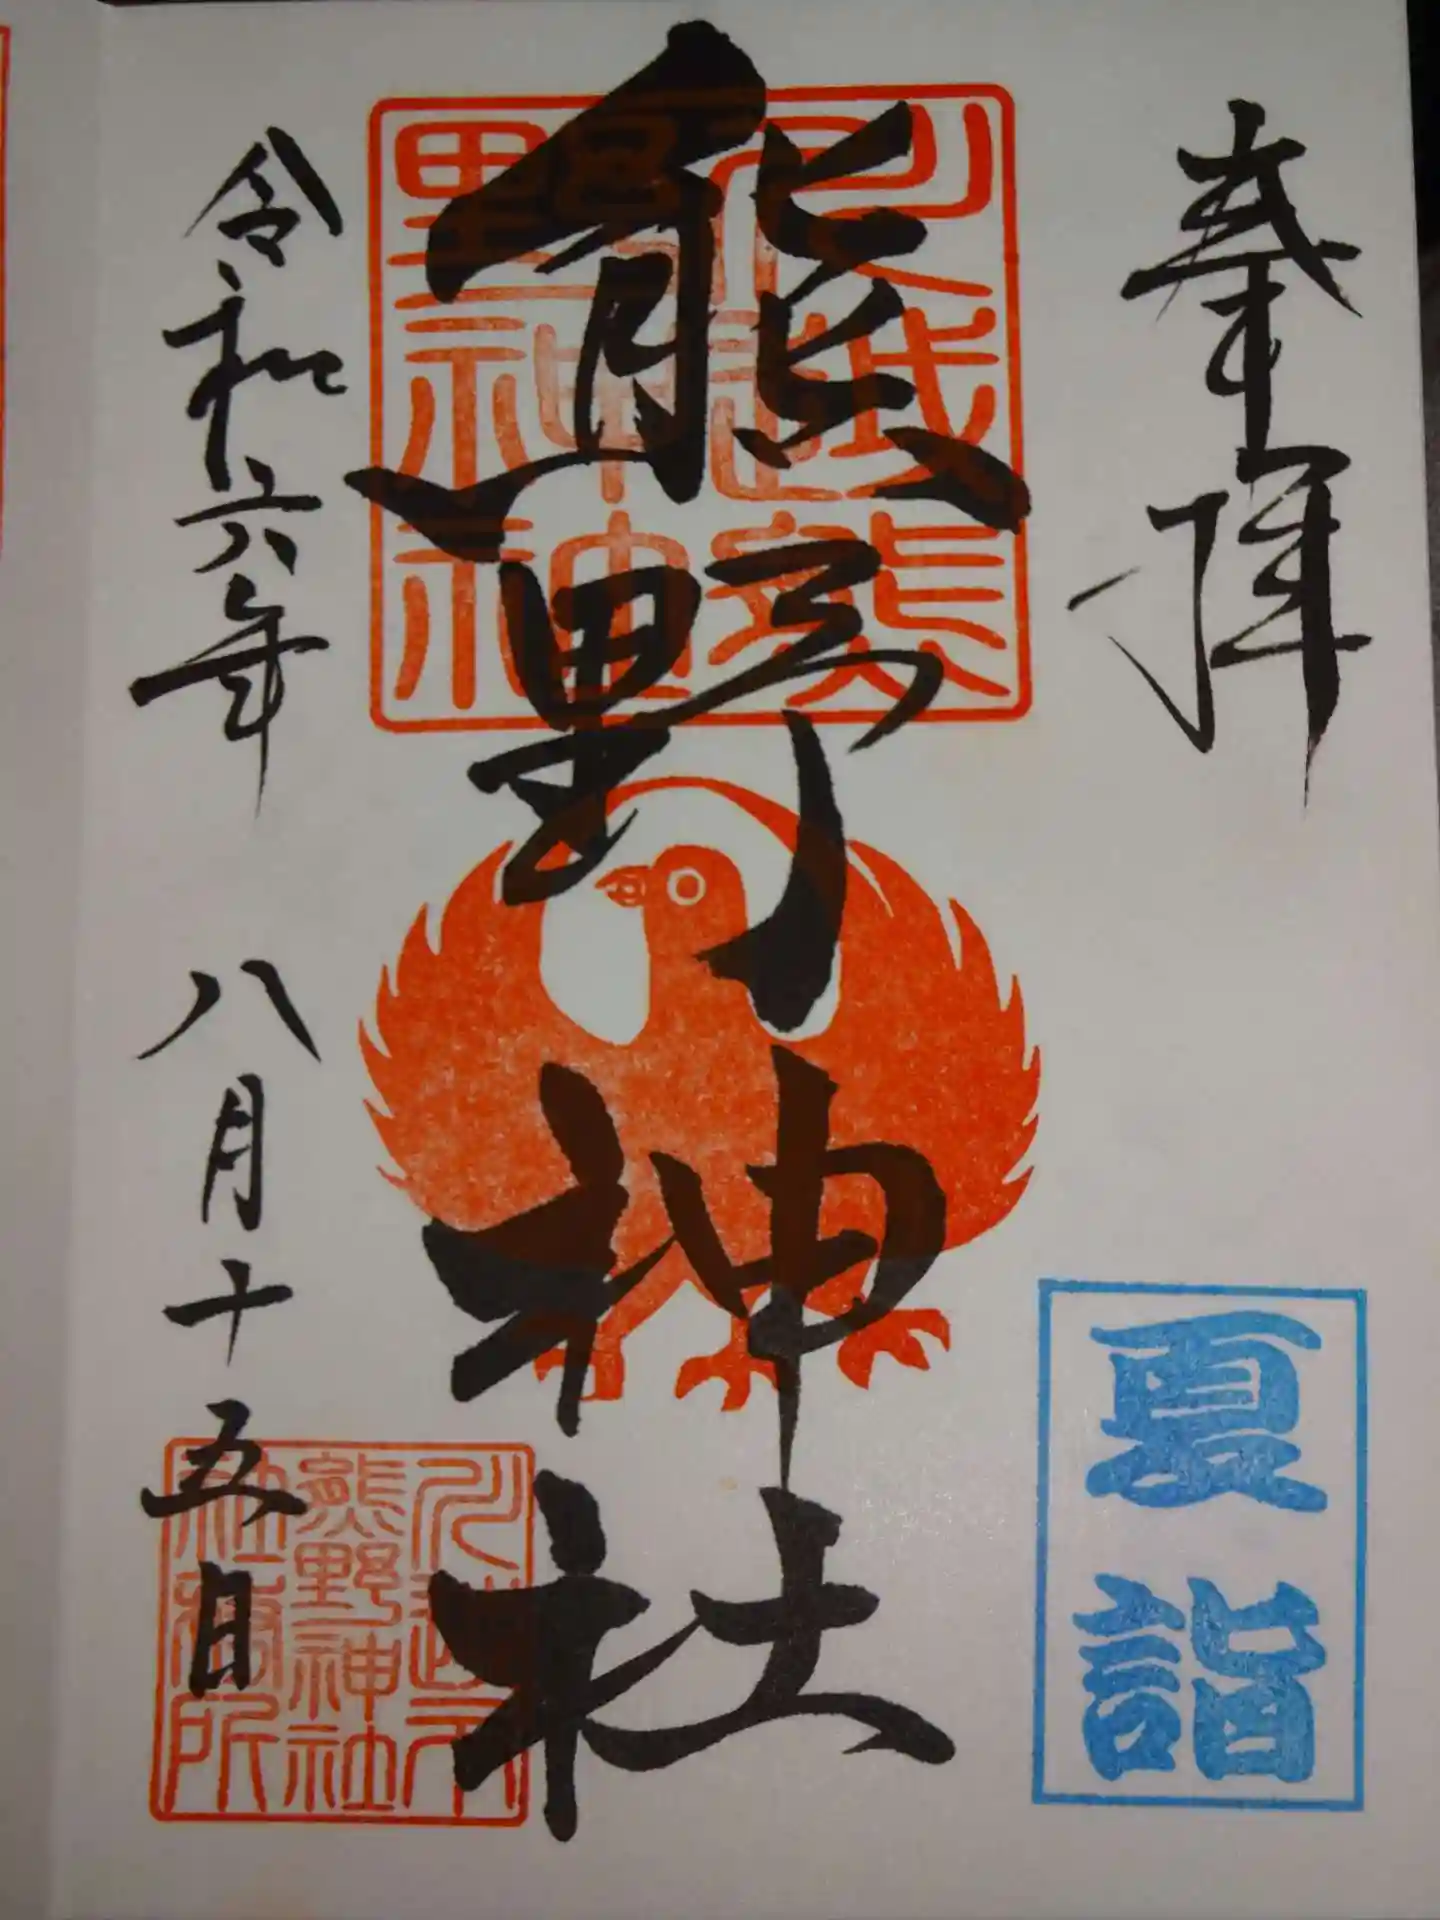 奉拝
夏詣
熊野神社
令和六年 八月十五日
川越市
熊野神社
社務所